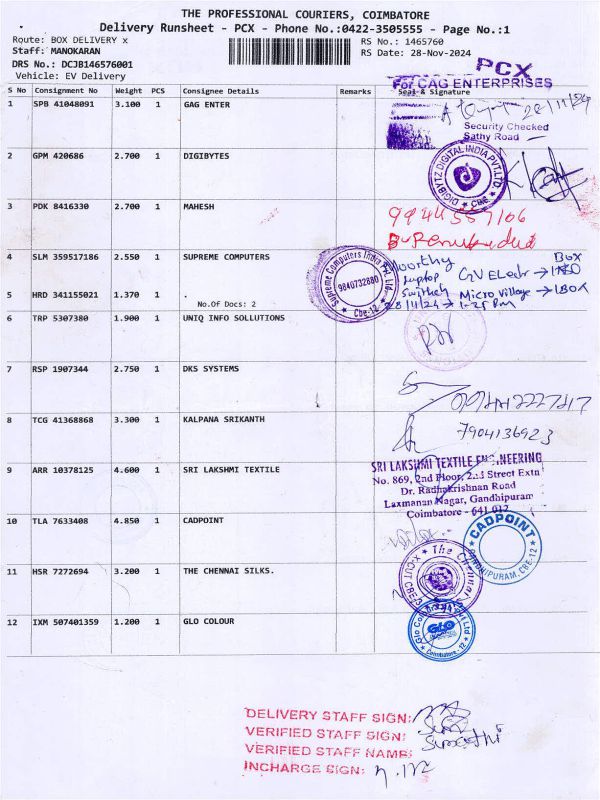 THE PROFESSIONAL COURIERS, COIMBATORE
Delivery Runsheet - PCX - Phone No.:0422-3505555 - Page No.:1
Route: BOX DELIVERY x
Staff: MANOKARAN
DRS No.: DCJB146576001
Vehicle: EV Delivery
RS No.: 1465760
RS Date: 28-Nov-2024
PCX
S No Consignment No Weight PCS Consignee Details Remarks Seal & Signature
For CAG ENTERPRISES
1 SPB 41048091 3.100 1 GAG ENTER
28/11/24
Security Checked
Sathy Road
2 GPM 420686 2.700 1 DIGIBYTES
DIGIBYTZ DIGITAL INDIA PVT.LTD
CBE
3 PDK 8416330 2.700 1 MAHESH
4 SLM 359517186 2.550 1 SUPREME COMPUTERS
Supreme Computers India Pvt. Ltd.
9840732880
Cbe-12
Moorthy
Laptop
Box
5 HRD 341155021 1.370 1 .
No.Of Docs: 2
Micro Village → 1 BOX
28/11/24 → 1-25 Pm
6 TRP 5307380 1.900 1 UNIQ INFO SOLLUTIONS
7 RSP 1907344 2.750 1 DKS SYSTEMS
8 TCG 41368868 3.300 1 KALPANA SRIKANTH
7904136923
9 ARR 10378125 4.600 1 SRI LAKSHMI TEXTILE
SRI LAKSHMI TEXTILE ENGINEERING
No. 869, 2nd Floor, 2nd Street Extn
Dr. Radhakrishnan Road
Laxmanan Nagar, Gandhipuram
Coimbatore - 641 012
10 TLA 7633408 4.850 1 CADPOINT
CADPOINT
GANDHIPURAM, CBE-12
11 HSR 7272694 3.200 1 THE CHENNAI SILKS.
The Chennai
X-CUT CBE
12 IXM 507401359 1.200 1 GLO COLOUR
GLO
Coimbatore - 12
DELIVERY STAFF SIGN:
VERIFIED STAFF SIGN:
VERIFIED STAFF NAME: Sumathi
INCHARGE SIGN: